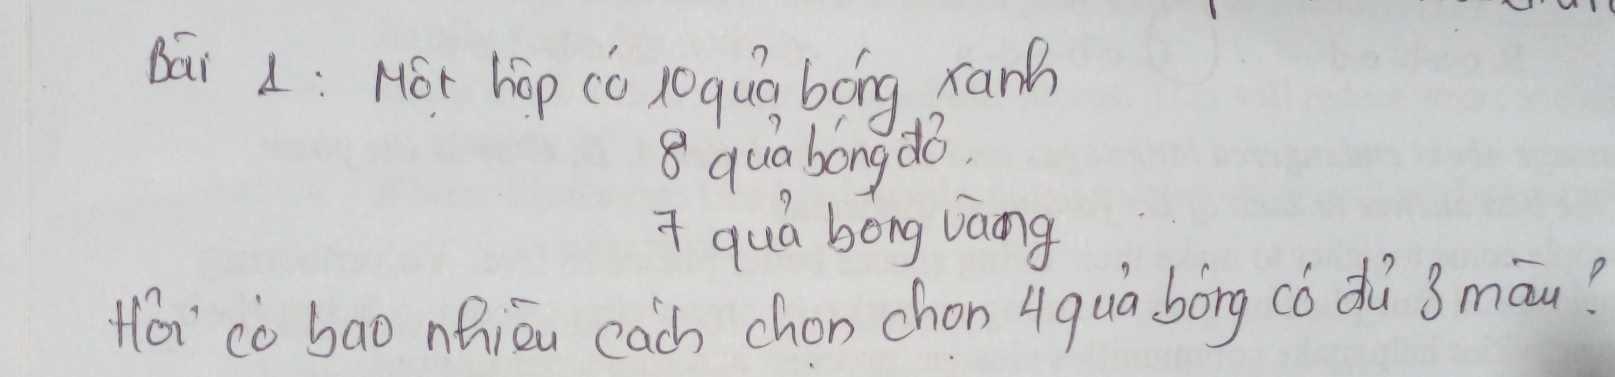 Bài 1: Một hộp có 10 quả bóng xanh
8 quả bóng đỏ.
7 quả bóng vàng
Hỏi có bao nhiêu cách chọn chọn 4 quả bóng có đủ 3 màu?